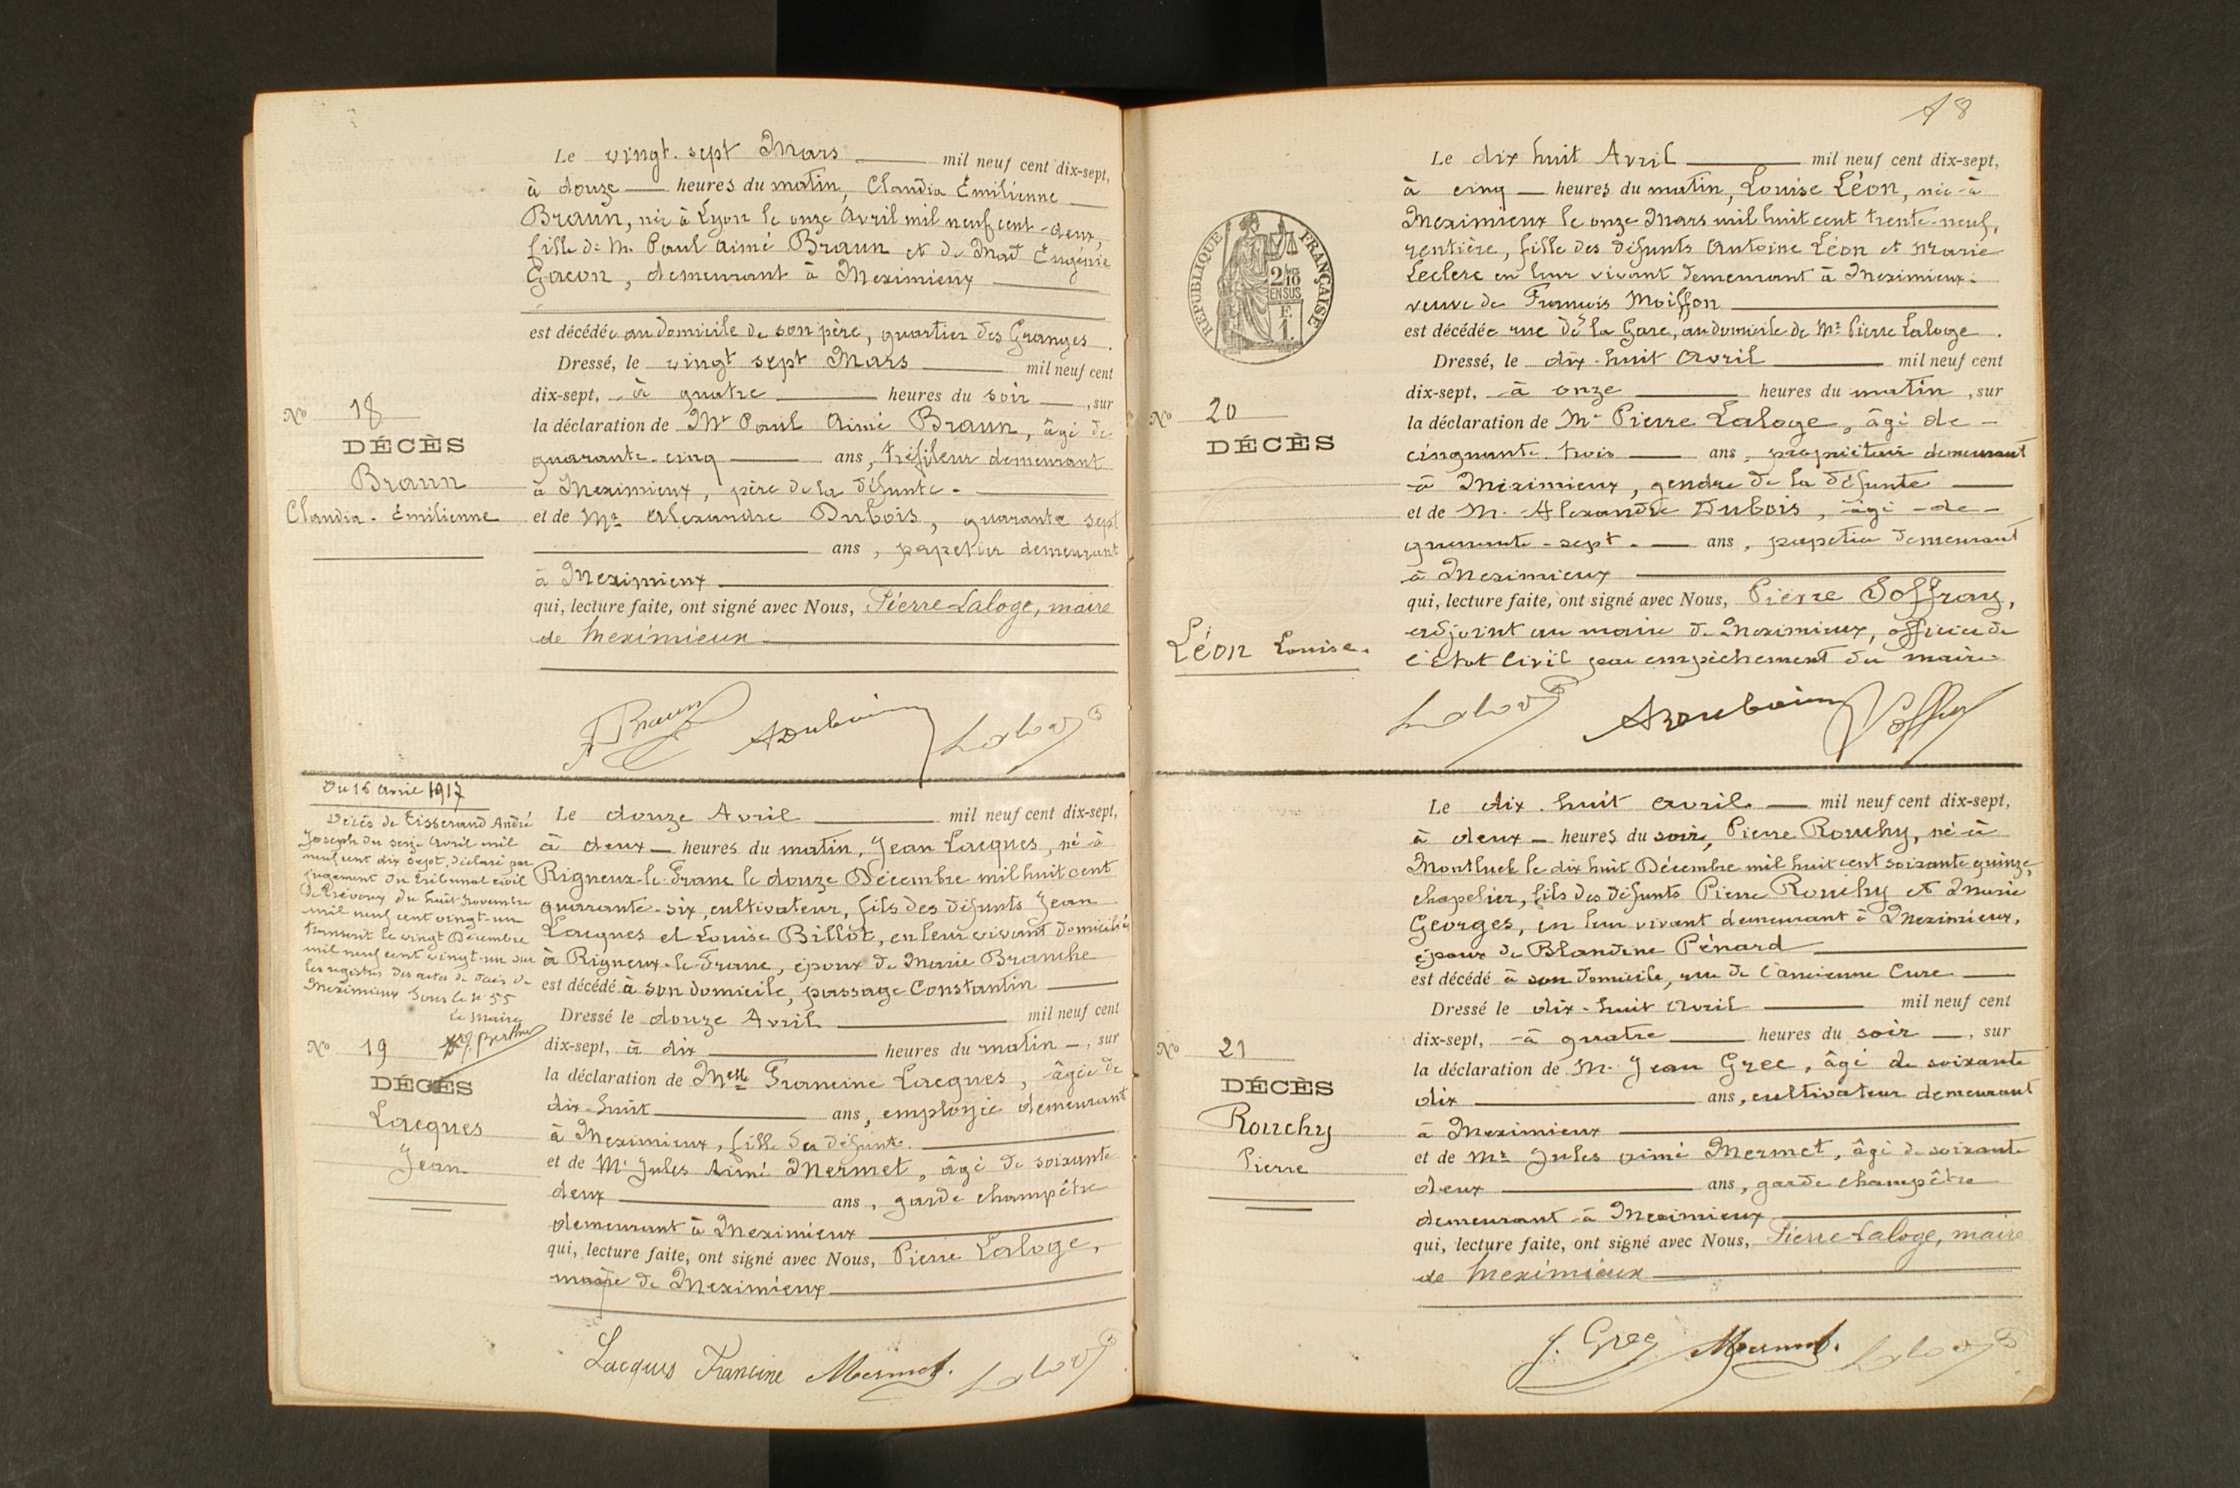 Le vingt-sept Mars mil neuf cent dix-sept,
à douze heures du matin, Claudia Émilienne
Braun, née à Lyon le onze Avril mil neuf cent-deux,
fille de M. Paul Aimé Braun et de Mad Eugénie
Gacon, demeurant à Meximieux
est décédée au domicile de son père, quartier des Granges.
Dressé, le vingt sept Mars mil neuf cent
dix-sept, à quatre heures du soir, sur
la déclaration de Mr Paul Aimé Braun, âgé de
quarante-cinq ans, tréfileur demeurant
à Meximieux, père de la défunte.
et de Mr Alexandre Dubois, quarante sept
ans, papetier demeurant
à Meximieux
qui, lecture faite, ont signé avec Nous, Pierre Laloge, maire
de Meximieux
No 18
DÉCÈS
Braun
Claudia-Émilienne
Braun ADubois Laloge
Du 16 avril 1917
Décès de Tisserand André
Joseph du seize Avril mil
neuf cent dix sept, déclaré par
jugement du tribunal civil
de Trévoux du huit novembre
mil neuf cent vingt-un
transcrit le vingt Décembre
mil neuf cent vingt-un sur
les registres des actes de décès de
Meximieux sous le n° 55
Le Maire
No 19
DÉCÈS
Lacques
Jean
Le douze Avril mil neuf cent dix-sept,
à deux heures du matin, Jean Lacques, né à
Rigneux-le-Franc le douze Décembre mil huit cent
quarante-six, cultivateur, fils des défunts Jean
Lacques et Louise Billot, en leur vivant domiciliés
à Rigneux-le-Franc, époux de Marie Branche
est décédé à son domicile, passage Constantin
Dressé le douze Avril mil neuf cent
dix-sept, à dix heures du matin, sur
la déclaration de Melle Francine Lacques, âgée de
dix-huit ans, employée demeurant
à Meximieux, fille du défunt.
et de Mr Jules Aimé Mermet, âgé de soixante
deux ans, garde champêtre
demeurant à Meximieux
qui, lecture faite, ont signé avec Nous, Pierre Laloge,
maire de Meximieux
Lacques Francine Mermet. Laloge
18
RÉPUBLIQUE FRANÇAISE
2/10
EN SUS
F.
1.
Le dix huit Avril mil neuf cent dix-sept,
à cinq heures du matin, Louise Léon, née à
Meximieux le onze Mars mil huit cent trente-neuf,
rentière, fille des défunts Antoine Léon et Marie
Leclerc en leur vivant demeurant à Meximieux.
veuve de François Moiffon
est décédée rue de la Gare, au domicile de Mr Pierre Laloge.
Dressé, le dix-huit Avril mil neuf cent
dix-sept, à onze heures du matin, sur
la déclaration de Mr Pierre Laloge, âgé de
cinquante-trois ans, propriétaire demeurant
à Meximieux, gendre de la défunte
et de M. Alexandre Dubois, âgé de
quarante-sept ans, papetier demeurant
à Meximieux
qui, lecture faite, ont signé avec Nous, Pierre Soffray,
adjoint au maire de Meximieux, officier de
l'état Civil par empêchement du maire
No 20
DÉCÈS
Léon Louise.
Laloge ADubois Soffray
Le dix-huit Avril mil neuf cent dix-sept,
à deux heures du soir, Pierre Rouchy, né à
Montluel le dix huit Décembre mil huit cent soixante quinze,
chapelier, fils des défunts Pierre Rouchy et Marie
Georges, en leur vivant demeurant à Meximieux,
époux de Blandine Pénard
est décédé à son domicile, rue de l'ancienne Cure
Dressé le dix-huit Avril mil neuf cent
dix-sept, à quatre heures du soir, sur
la déclaration de M. Jean Grec, âgé de soixante
dix ans, cultivateur demeurant
à Meximieux
et de Mr Jules Aimé Mermet, âgé de soixante
deux ans, garde champêtre
demeurant à Meximieux
qui, lecture faite, ont signé avec Nous, Pierre Laloge, maire
de Meximieux
No 21
DÉCÈS
Rouchy
Pierre
J. Grec Mermet. Laloge